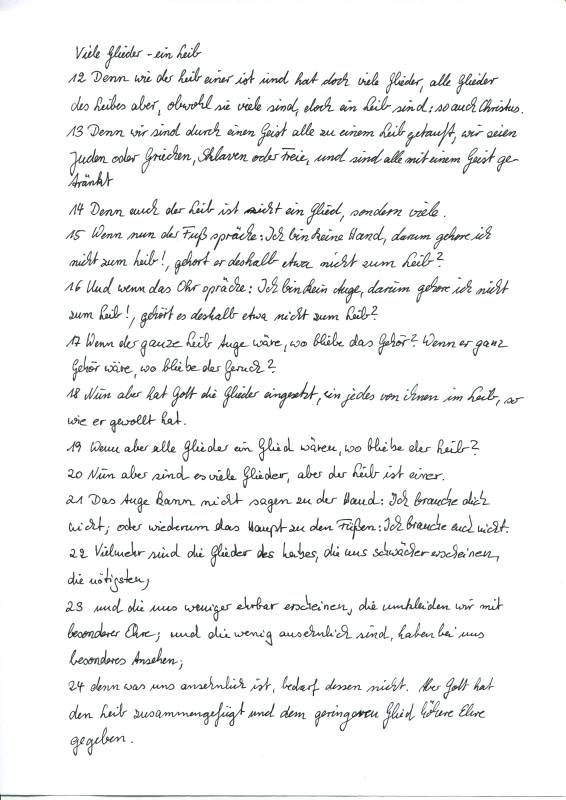 Viele Glieder - ein Leib
12 Denn wie der Leib einer ist und hat doch viele Glieder, alle Glieder
des Leibes aber, obwohl sie viele sind, doch ein Leib sind: so auch Christus.
13 Denn wir sind durch einen Geist alle zu einem Leib getauft, wir seien
Juden oder Griechen, Sklaven oder Freie, und sind alle mit einem Geist ge-
tränkt
14 Denn auch der Leib ist nicht ein Glied, sondern viele.
15 Wenn nun der Fuß spräche: Ich bin keine Hand, darum gehöre ich
nicht zum Leib!, gehört er deshalb etwa nicht zum Leib?
16 Und wenn das Ohr spräche: Ich bin kein Auge, darum gehöre ich nicht
zum Leib!, gehört es deshalb etwa nicht zum Leib?
17 Wenn der ganze Leib Auge wäre, wo bliebe das Gehör? Wenn er ganz
Gehör wäre, wo bliebe der Geruch?
18 Nun aber hat Gott die Glieder eingesetzt, ein jedes von ihnen im Leib, so
wie er gewollt hat.
19 Wenn aber alle Glieder ein Glied wären, wo bliebe der Leib?
20 Nun aber sind es viele Glieder, aber der Leib ist einer.
21 Das Auge kann nicht sagen zu der Hand: Ich brauche dich
nicht; oder wiederum das Haupt zu den Füßen: Ich brauche euch nicht.
22 Vielmehr sind die Glieder des Leibes, die uns schwächer erscheinen,
die nötigsten;
23 und die uns weniger ehrbar erscheinen, die umkleiden wir mit
besonderer Ehre; und die wenig ansehnlich sind, haben bei uns
besonderes Ansehen;
24 denn was uns ansehnlich ist, bedarf dessen nicht. Aber Gott hat
den Leib zusammengefügt und dem geringeren Glied höhere Ehre
gegeben.